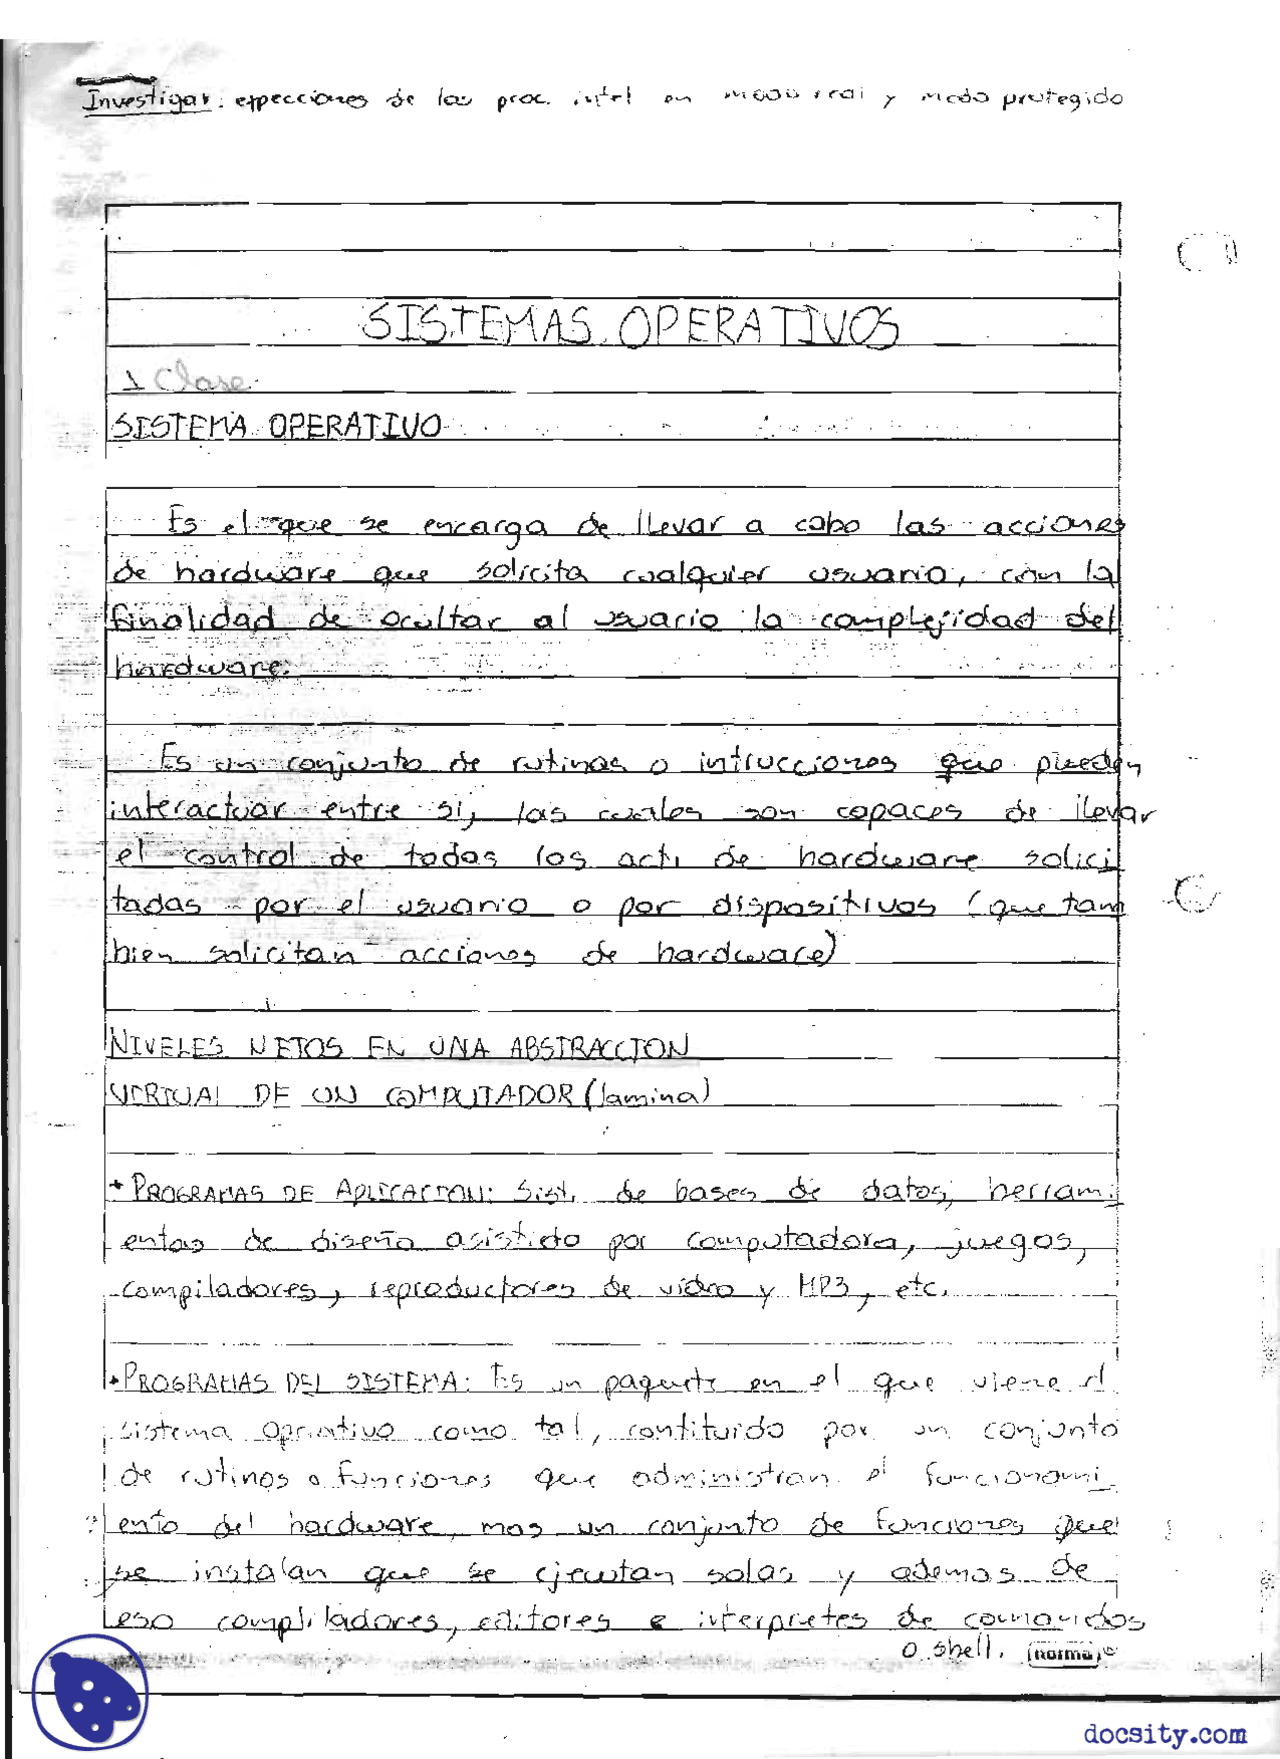 Investigar: expecciones de las proc. intel en modo real y modo protegido
SISTEMAS OPERATIVOS
1 Clase
SISTEMA OPERATIVO
Es el que se encarga de llevar a cabo las acciones
de hardware que solicita cualquier usuario, con la
finalidad de ocultar al usuario la complejidad del
hardware.
Es un conjunto de rutinas o intrucciones que pueden
interactuar entre si, las cuales son capaces de llevar
el control de todas los act. de hardware solici
tadas por el usuario o por dispositivos (que tam
bien solicitan acciones de hardware)
NIVELES NETOS EN UNA ABSTRACCION
VIRTUAL DE UN COMPUTADOR (lamina)
* PROGRAMAS DE APLICACION: Sist. de bases de datos, herrami
entas de diseño asistido por computadora, juegos,
compiladores, reproductores de video y MP3, etc.
* PROGRAMAS DEL SISTEMA: Es un paquete en el que viene el
sistema operativo como tal, contituido por un conjunto
de rutinas o funciones que administran el funcionami
ento del hardware, mas un conjunto de funciones que
se instalan que se ejecutan solas y ademas de
eso compliladores, editores e interpretes de comandos
o shell.
norma
docsity.com